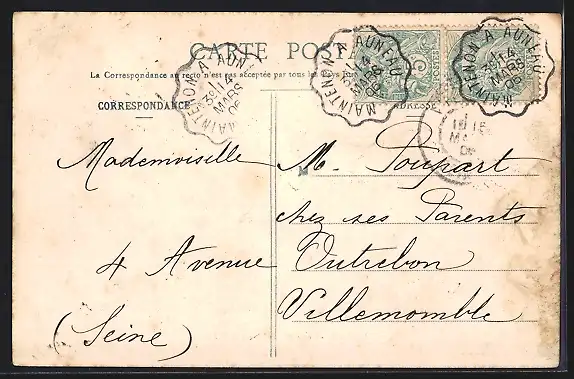 CARTE POSTALE
La Correspondance au recto n'est pas acceptée par tous les pays
CORRESPONDANCE
ADRESSE
MAINTENON A AUNEAU
14
MARS
06
MAINTENON A AUNEAU
14
MARS
06
MAINTENON A AUNEAU
14
MARS
06
Mademoiselle M. Poupart
chez ses Parents
4 Avenue Outrebon
Villemomble
(Seine)